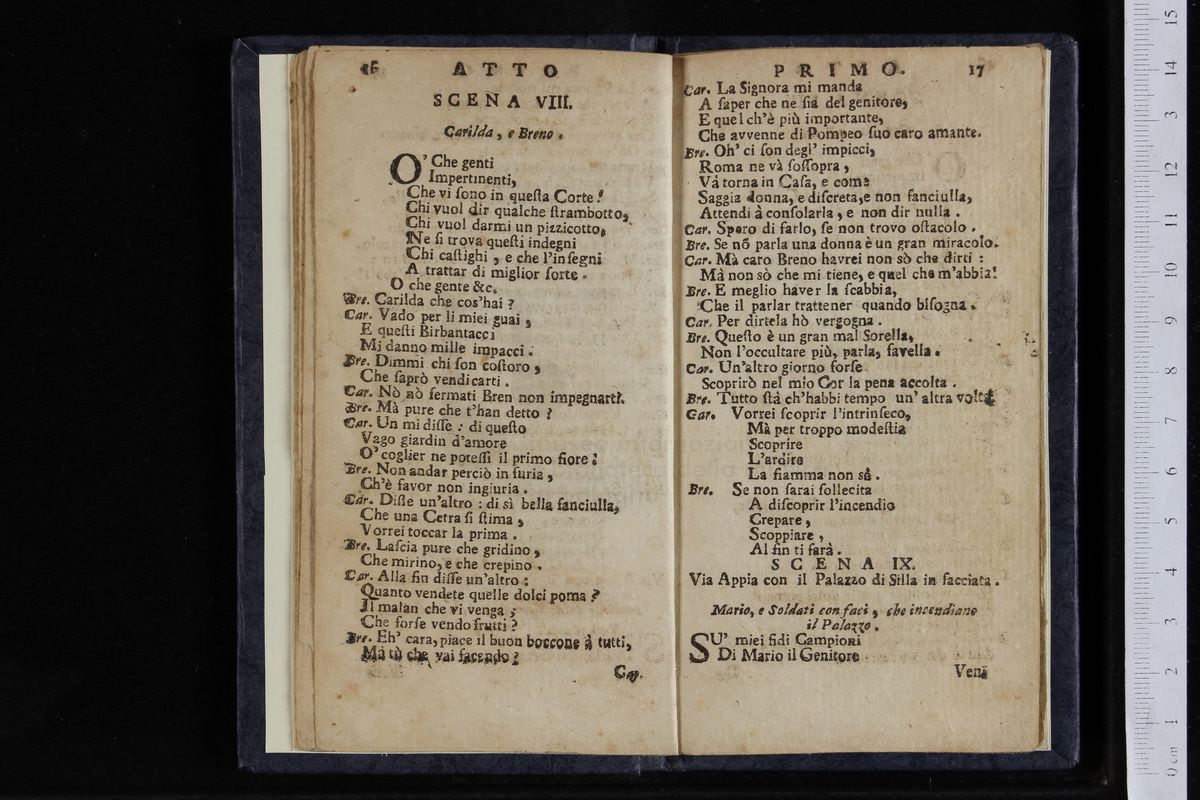 16 ATTO
SCENA VIII.
Carilda, e Breno.
O' Che genti
Impertinenti,
Che vi ſono in queſta Corte!
Chi vuol dir qualche ſtrambotto,
Chi vuol darmi un pizzicotto,
Ne ſi trova queſti indegni
Chi caſtighi, e che l'inſegni
A trattar di miglior ſorte.
O che gente &c.
Bre. Carilda che cos'hai?
Car. Vado per li miei guai,
E queſti Birbantacci
Mi danno mille impacci.
Bre. Dimmi chi ſon coſtoro,
Che ſaprò vendicarti.
Car. Nò nò fermati Bren non impegnarti.
Bre. Mà pure che t'han detto?
Car. Un mi diſſe: di queſto
Vago giardin d'amore
O' coglier ne poteſſi il primo fiore!
Bre. Non andar perciò in furia,
Ch'è favor non ingiuria.
Car. Diſſe un'altro: di sì bella fanciulla,
Che una Cetra ſi ſtima,
Vorrei toccar la prima.
Bre. Laſcia pure che gridino,
Che mirino, e che crepino.
Car. Alla fin diſſe un'altro:
Quanto vendete quelle dolci poma?
Il malan che vi venga;
Che forſe vendo frutti?
Bre. Eh' cara, piace il buon boccone à tutti,
Mà tù che vai facendo?
Car.
PRIMO. 17
Car. La Signora mi manda
A ſaper che ne ſia del genitore,
E quel ch'è più importante,
Che avvenne di Pompeo ſuo caro amante.
Bre. Oh' ci ſon degl' impicci,
Roma ne và ſoſſopra,
Và torna in Caſa, e come
Saggia donna, e diſcreta, e non fanciulla,
Attendi à conſolarla, e non dir nulla.
Car. Spero di farlo, ſe non trovo oſtacolo.
Bre. Se nõ parla una donna è un gran miracolo.
Car. Mà caro Breno havrei non sò che dirti:
Mà non sò che mi tiene, e quel che m'abbia!
Bre. E meglio haver la ſcabbia,
Che il parlar trattener quando biſogna.
Car. Per dirtela hò vergogna.
Bre. Queſto è un gran mal Sorella,
Non l'occultare più, parla, favella.
Car. Un'altro giorno forſe
Scoprirò nel mio Cor la pena accolta.
Bre. Tutto ſtà ch'habbi tempo un' altra volta.
Car. Vorrei ſcoprir l'intrinſeco,
Mà per troppo modeſtia
Scoprire
L'ardire
La fiamma non sà.
Bre. Se non ſarai ſollecita
A diſcoprir l'incendio
Crepare,
Scoppiare,
Al fin ti farà.
SCENA IX.
Via Appia con il Palazzo di Silla in facciata.
Mario, e Soldati con faci, che incendiano
il Palazzo.
SU' miei fidi Campioni
Di Mario il Genitore